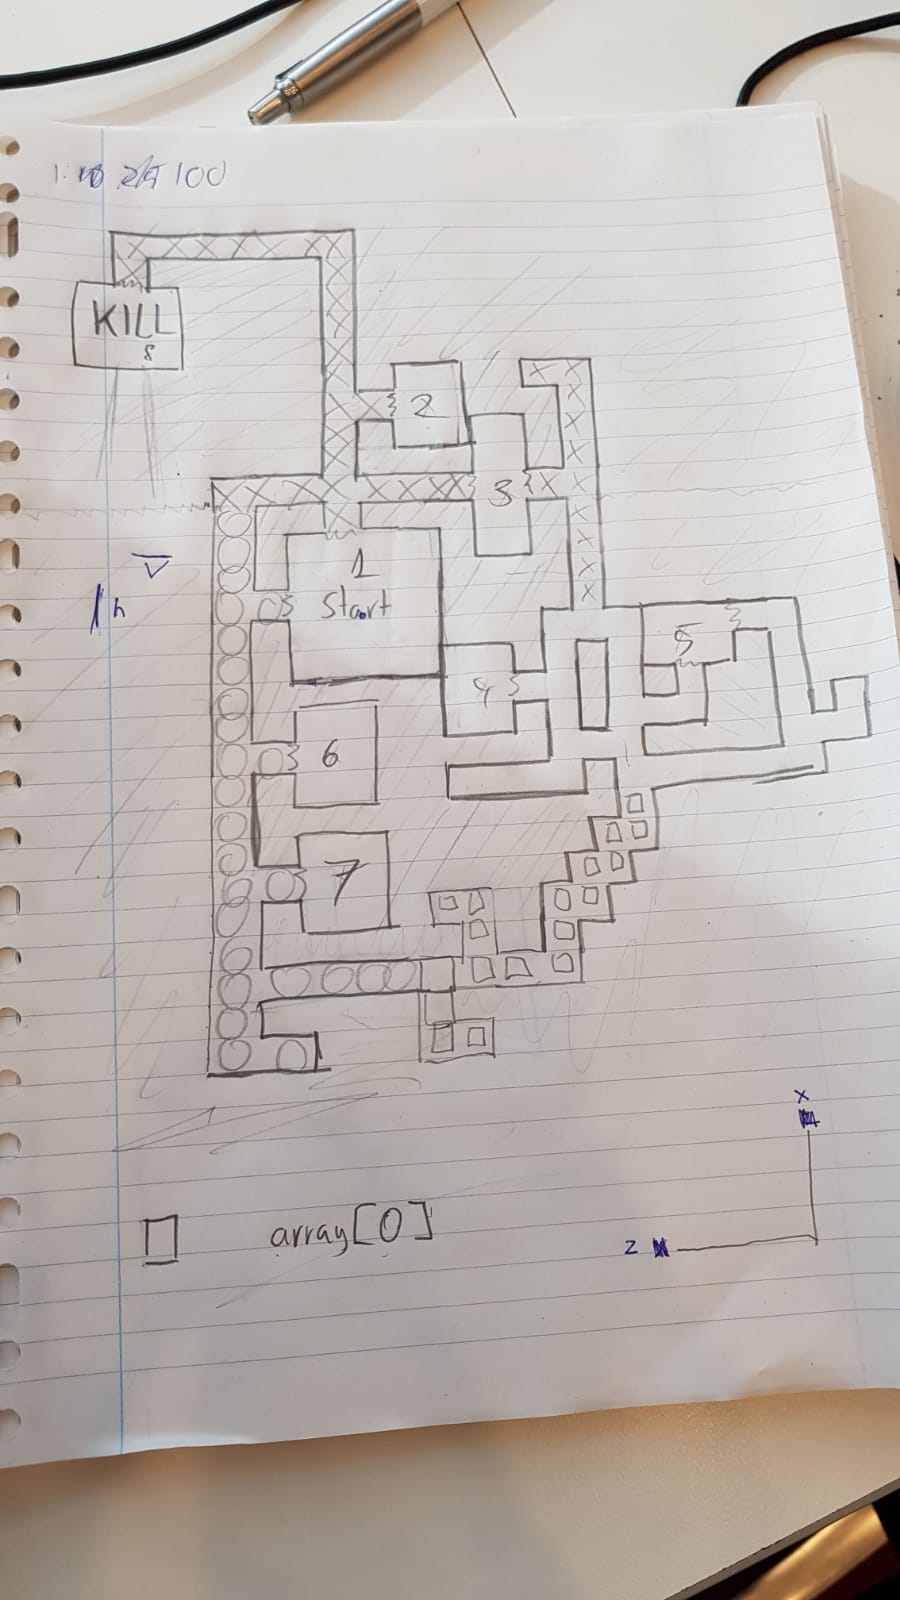 100
KILL
8
2
3
1
Start
h
5
4
6
7
x
array[0]
z